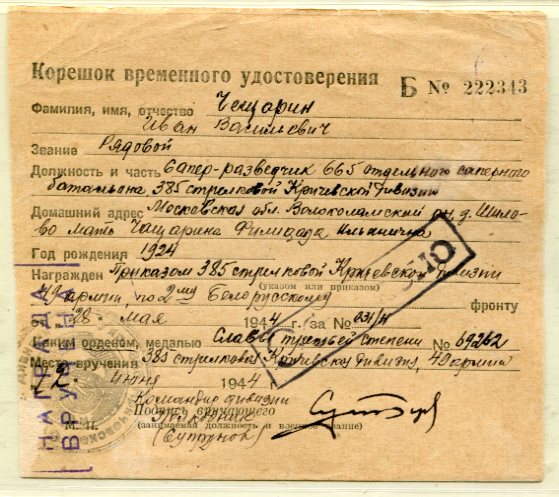 Корешок временного удостоверения Б № 222343
Фамилия, имя, отчество Чещарин
Иван Васильевич
Звание Рядовой
Должность и часть Сапер-разведчик 665 отдельного саперного
батальона 385 стрелковой Кричевской дивизии
Домашний адрес Московская обл. Волоколамский рн, д. Шило-
во мать Чещарина Ильинична
Год рождения 1924
Награжден Приказом 385 стрелковой Кричевской дивизии
(указом или приказом)
49 армии по 2му Белорусскому фронту
28 мая 1944 г. за № 031/н
Каким орденом, медалью Слава третьей степени № 69262
Место вручения 385 стрелковой Кричевская дивизия, 49 армии
2 июня 1944 г.
Командир дивизии
Подпись вручающего
Полковник
М. П. (занимаемая должность и воинское звание)
(Супрунов)
НАГРАДА
ВРУЧЕНА